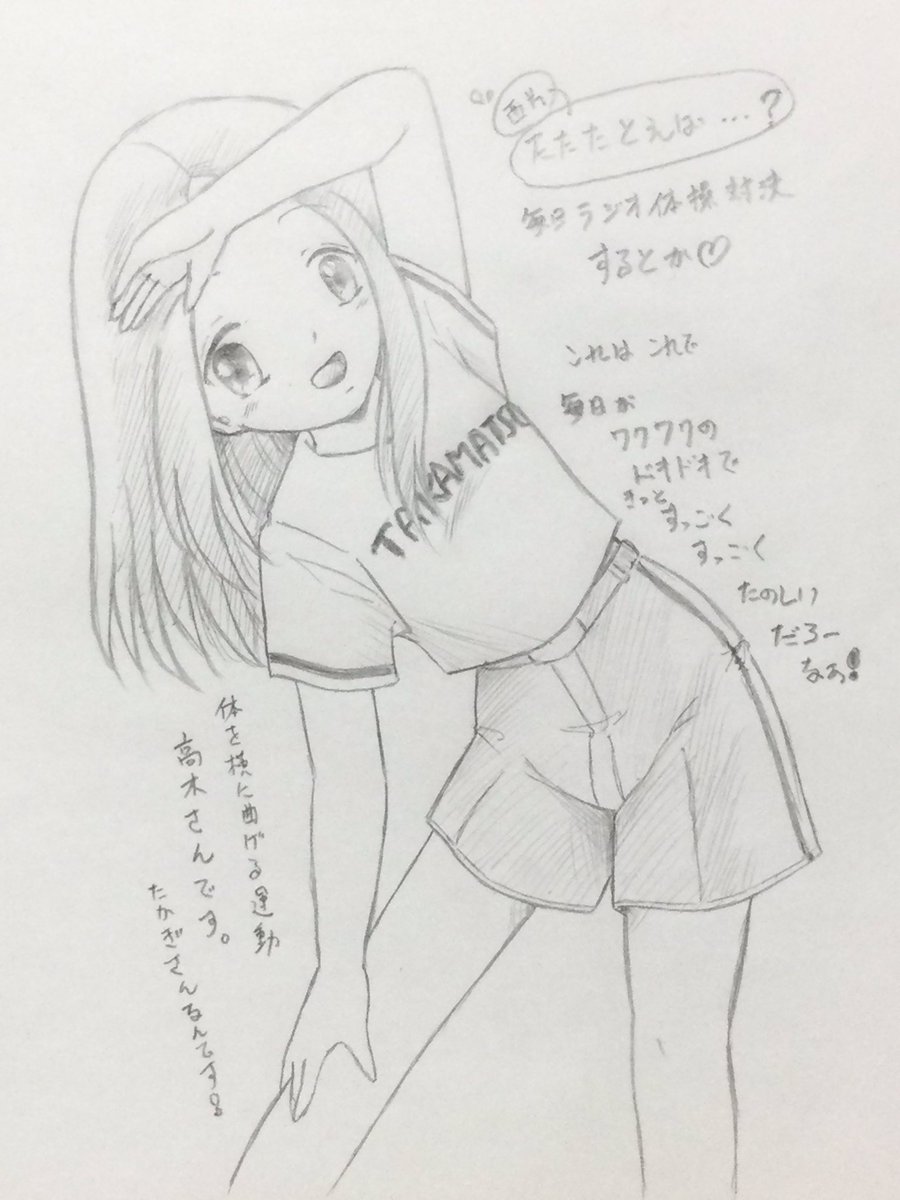 西片
たたたとえば…?
毎日ラジオ体操対決
するとか♡
これは これで
毎日が
ワクワクの
ドオドオで
きっと
すっごく
すっごく
たのしい
だろー
なぁ!
TAKAMATSU
体を横に曲げる運動
高木さんです。
たかぎさんなんです。